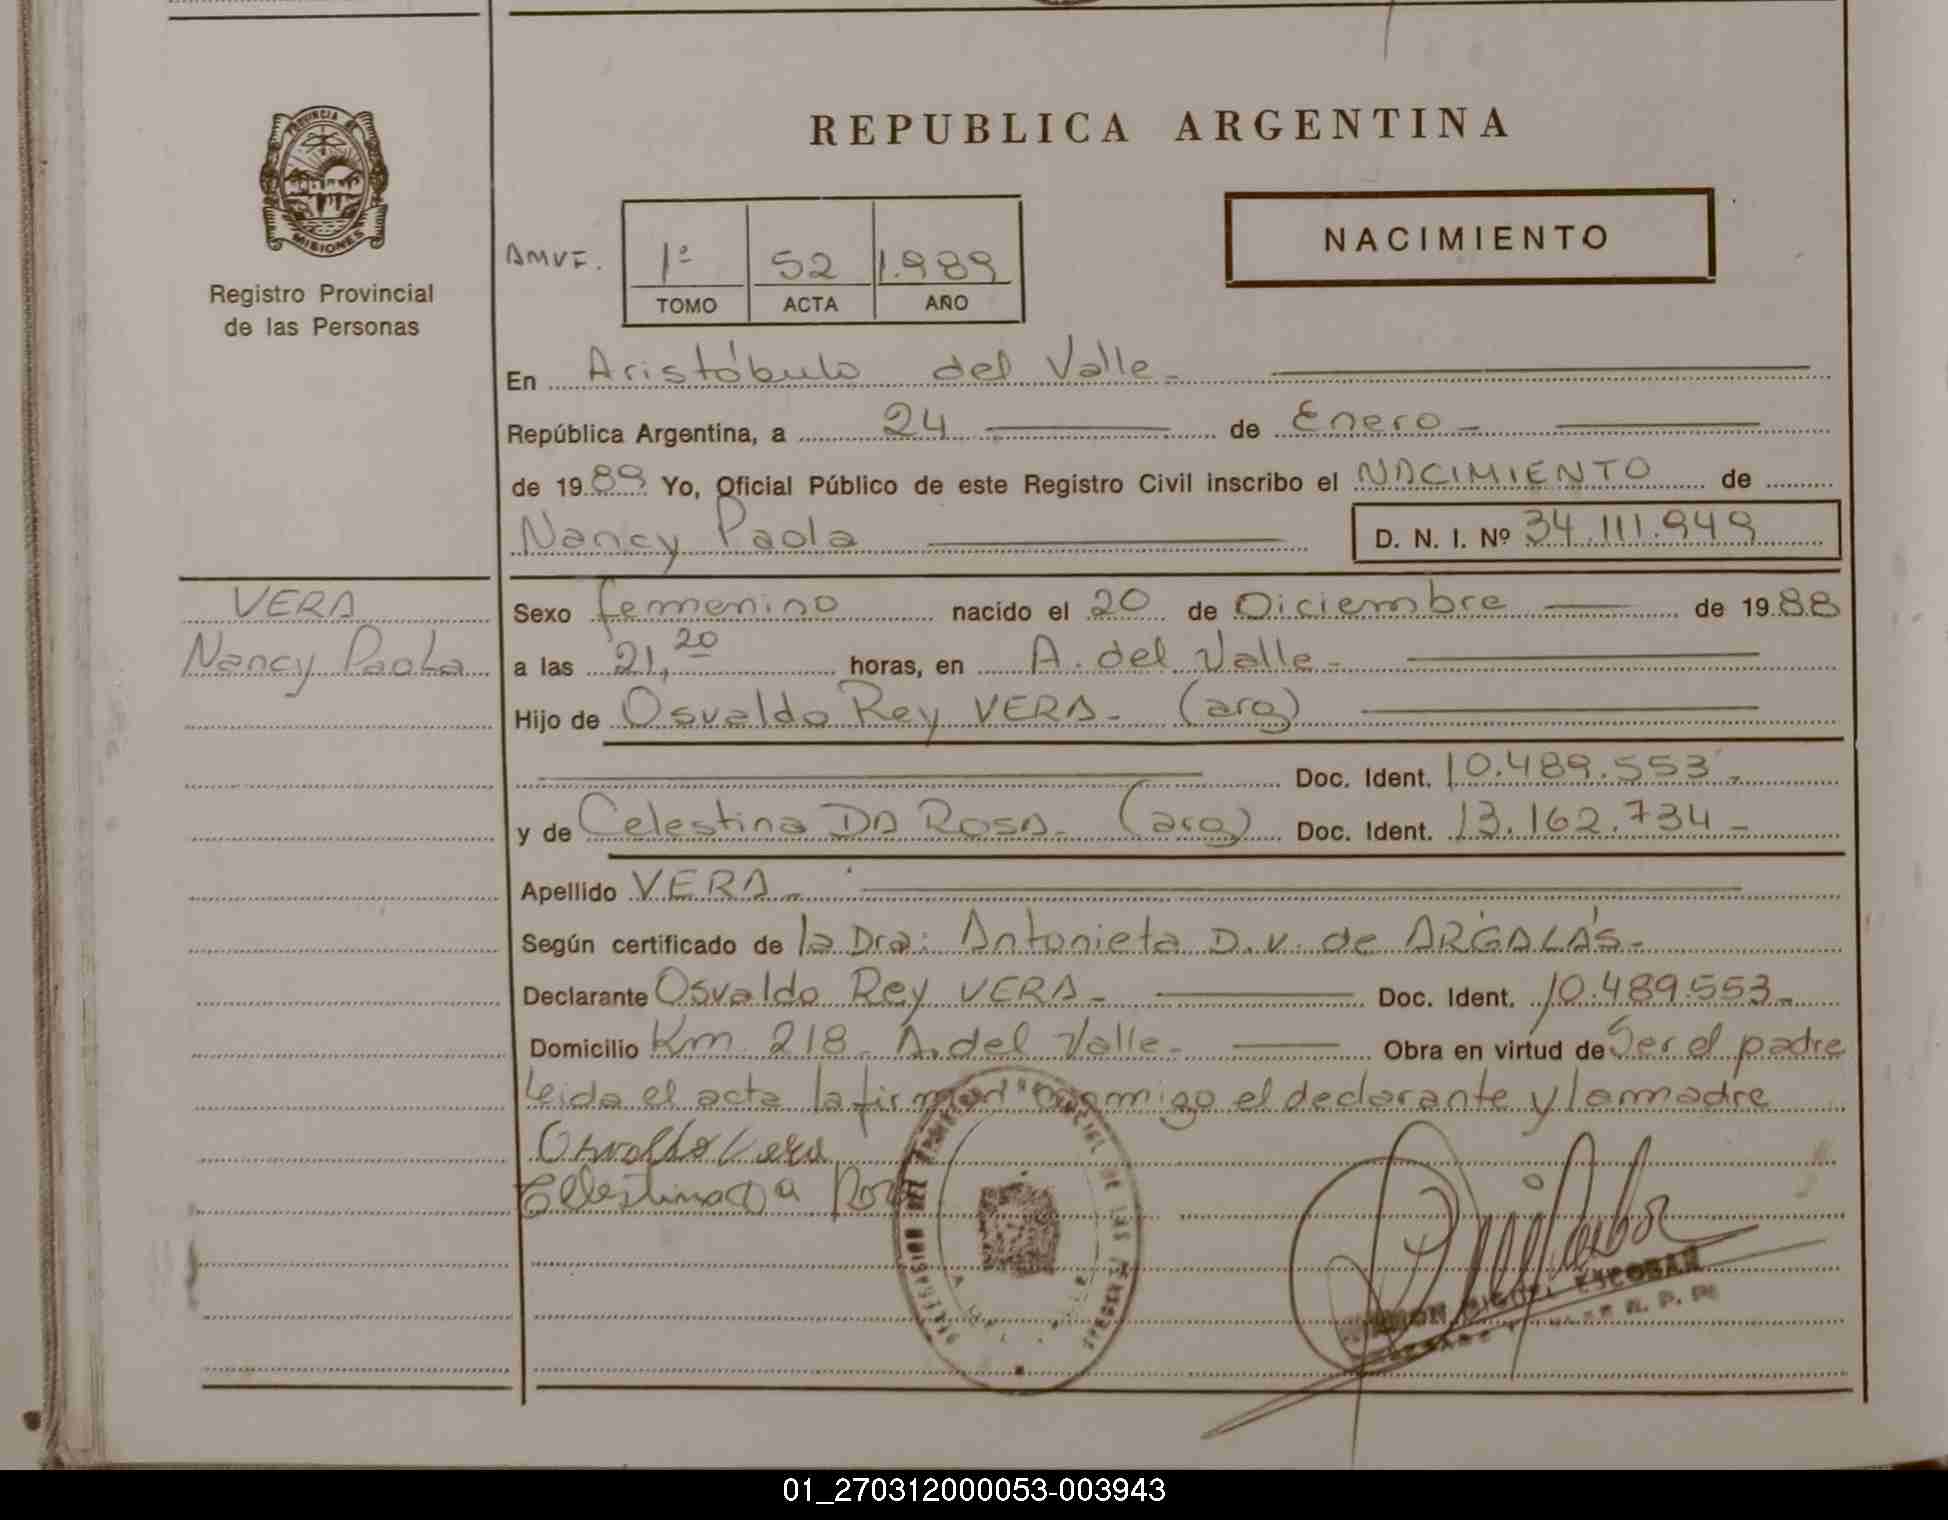 PROVINCIA DE
MISIONES
Registro Provincial
de las Personas
REPUBLICA ARGENTINA
AMVF.
1º 52 1.989
TOMO ACTA AÑO
NACIMIENTO
En Aristóbulo del Valle-
República Argentina, a 24 de Enero-
de 1989 Yo, Oficial Público de este Registro Civil inscribo el NACIMIENTO de
Nancy Paola D. N. I. Nº 34.111.949
VERA
Nancy Paola
Sexo femenino nacido el 20 de Diciembre de 1988
a las 21,20 horas, en A. del Valle-
Hijo de Osvaldo Rey VERA- (arg)
Doc. Ident. 10.489.553-
y de Celestina DA ROSA- (arg) Doc. Ident. 13.162.734-
Apellido VERA-
Según certificado de la Dra: Antonieta D.V. de ARGALÁS-
Declarante Osvaldo Rey VERA- Doc. Ident. 10.489.553-
Domicilio Km 218- A. del Valle- Obra en virtud de Ser el padre
Leida el acta la firman conmigo el declarante y la madre
Osvaldo Vera
Celestina Da Rosa
DELEGACION DEL REGISTRO PROVINCIAL DE LAS PERSONAS
RAMON MIGUEL ESCOBAR
R. P. P.
01_270312000053-003943